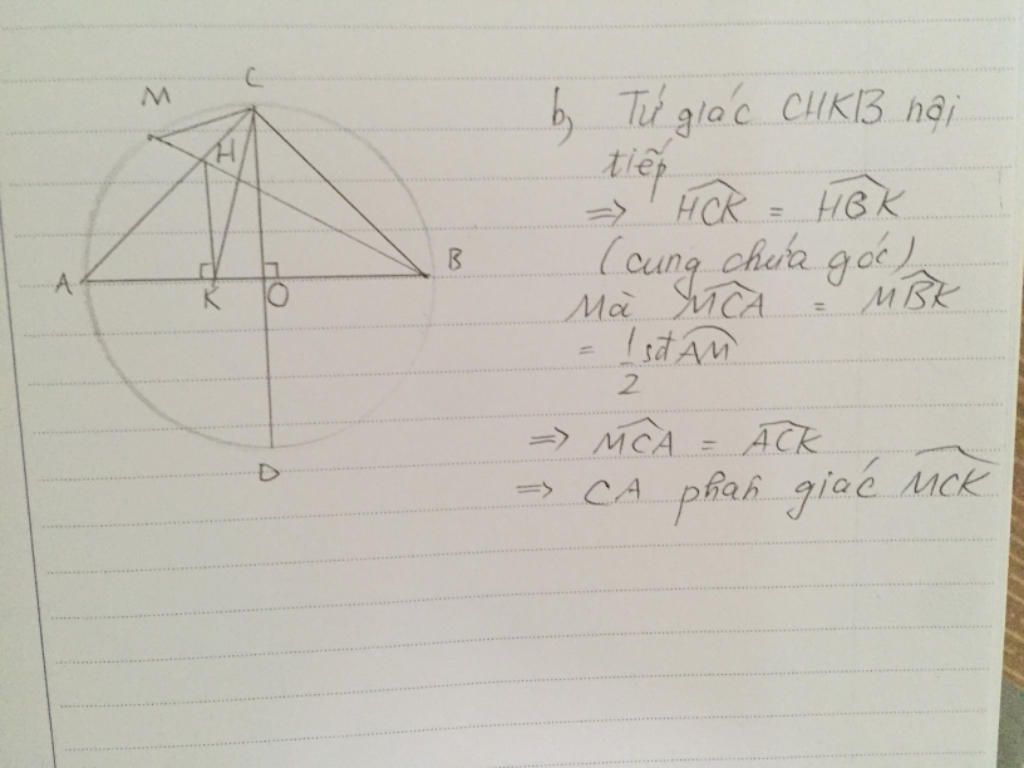 C
M
H
B
A
K
O
D
b, Tứ giác CHKB nội
tiếp
=> HCK = HBK
(cung chứa góc)
Mà MCA = MBK
= 1/2 sđ AM
=> MCA = ACK
=> CA phân giác MCK